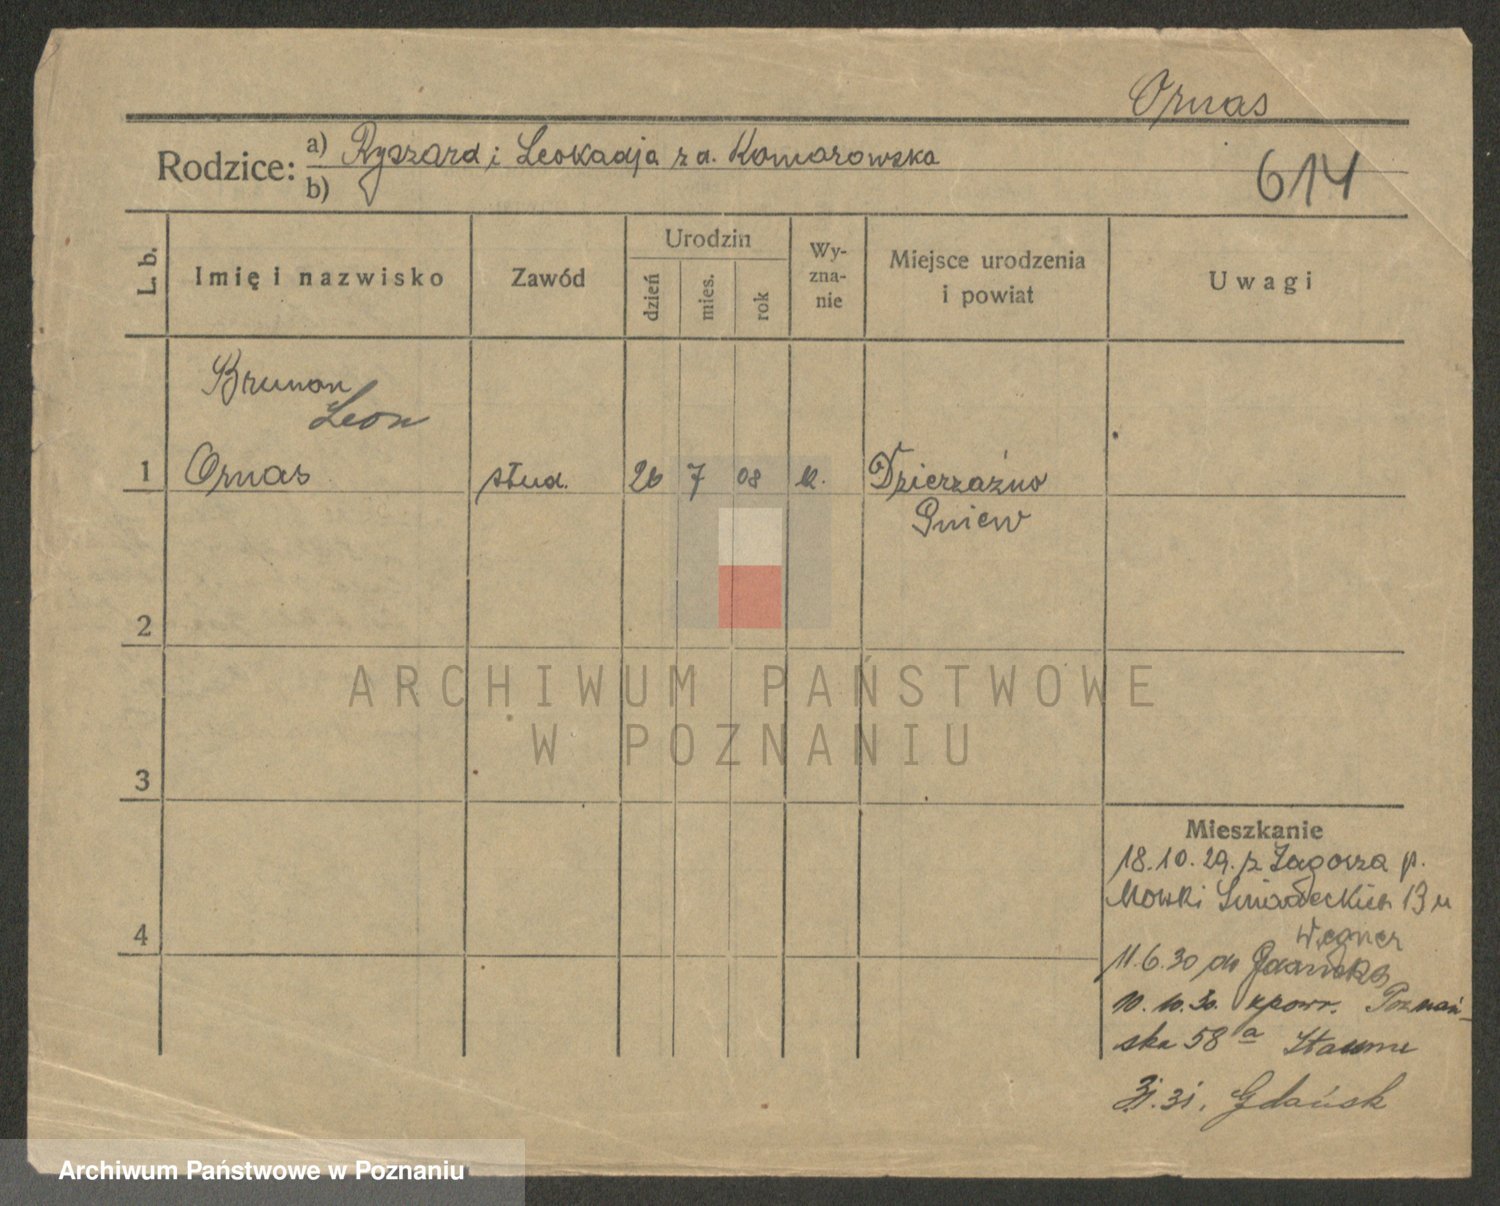 Ornas
Rodzice: a) Ryszard i Leokadja z d. Komorowska
b)
614
L. b.
Imię i nazwisko
Zawód
Urodzin
dzień
mies.
rok
Wy-
zna-
nie
Miejsce urodzenia
i powiat
Uwagi
Brunon
Leon
1 Ornas stud. 26 7 08 k. Dzierzążno
Gniew
2
3
4
Mieszkanie
18.10.29. z Zagorza p.
Śniadeckich 13 u
Wegner
11.6.30 do Gdańska
10.10.30. powr. Poznań-
ska 58 a
31. Gdańsk
ARCHIWUM PAŃSTWOWE
W POZNANIU
Archiwum Państwowe w Poznaniu